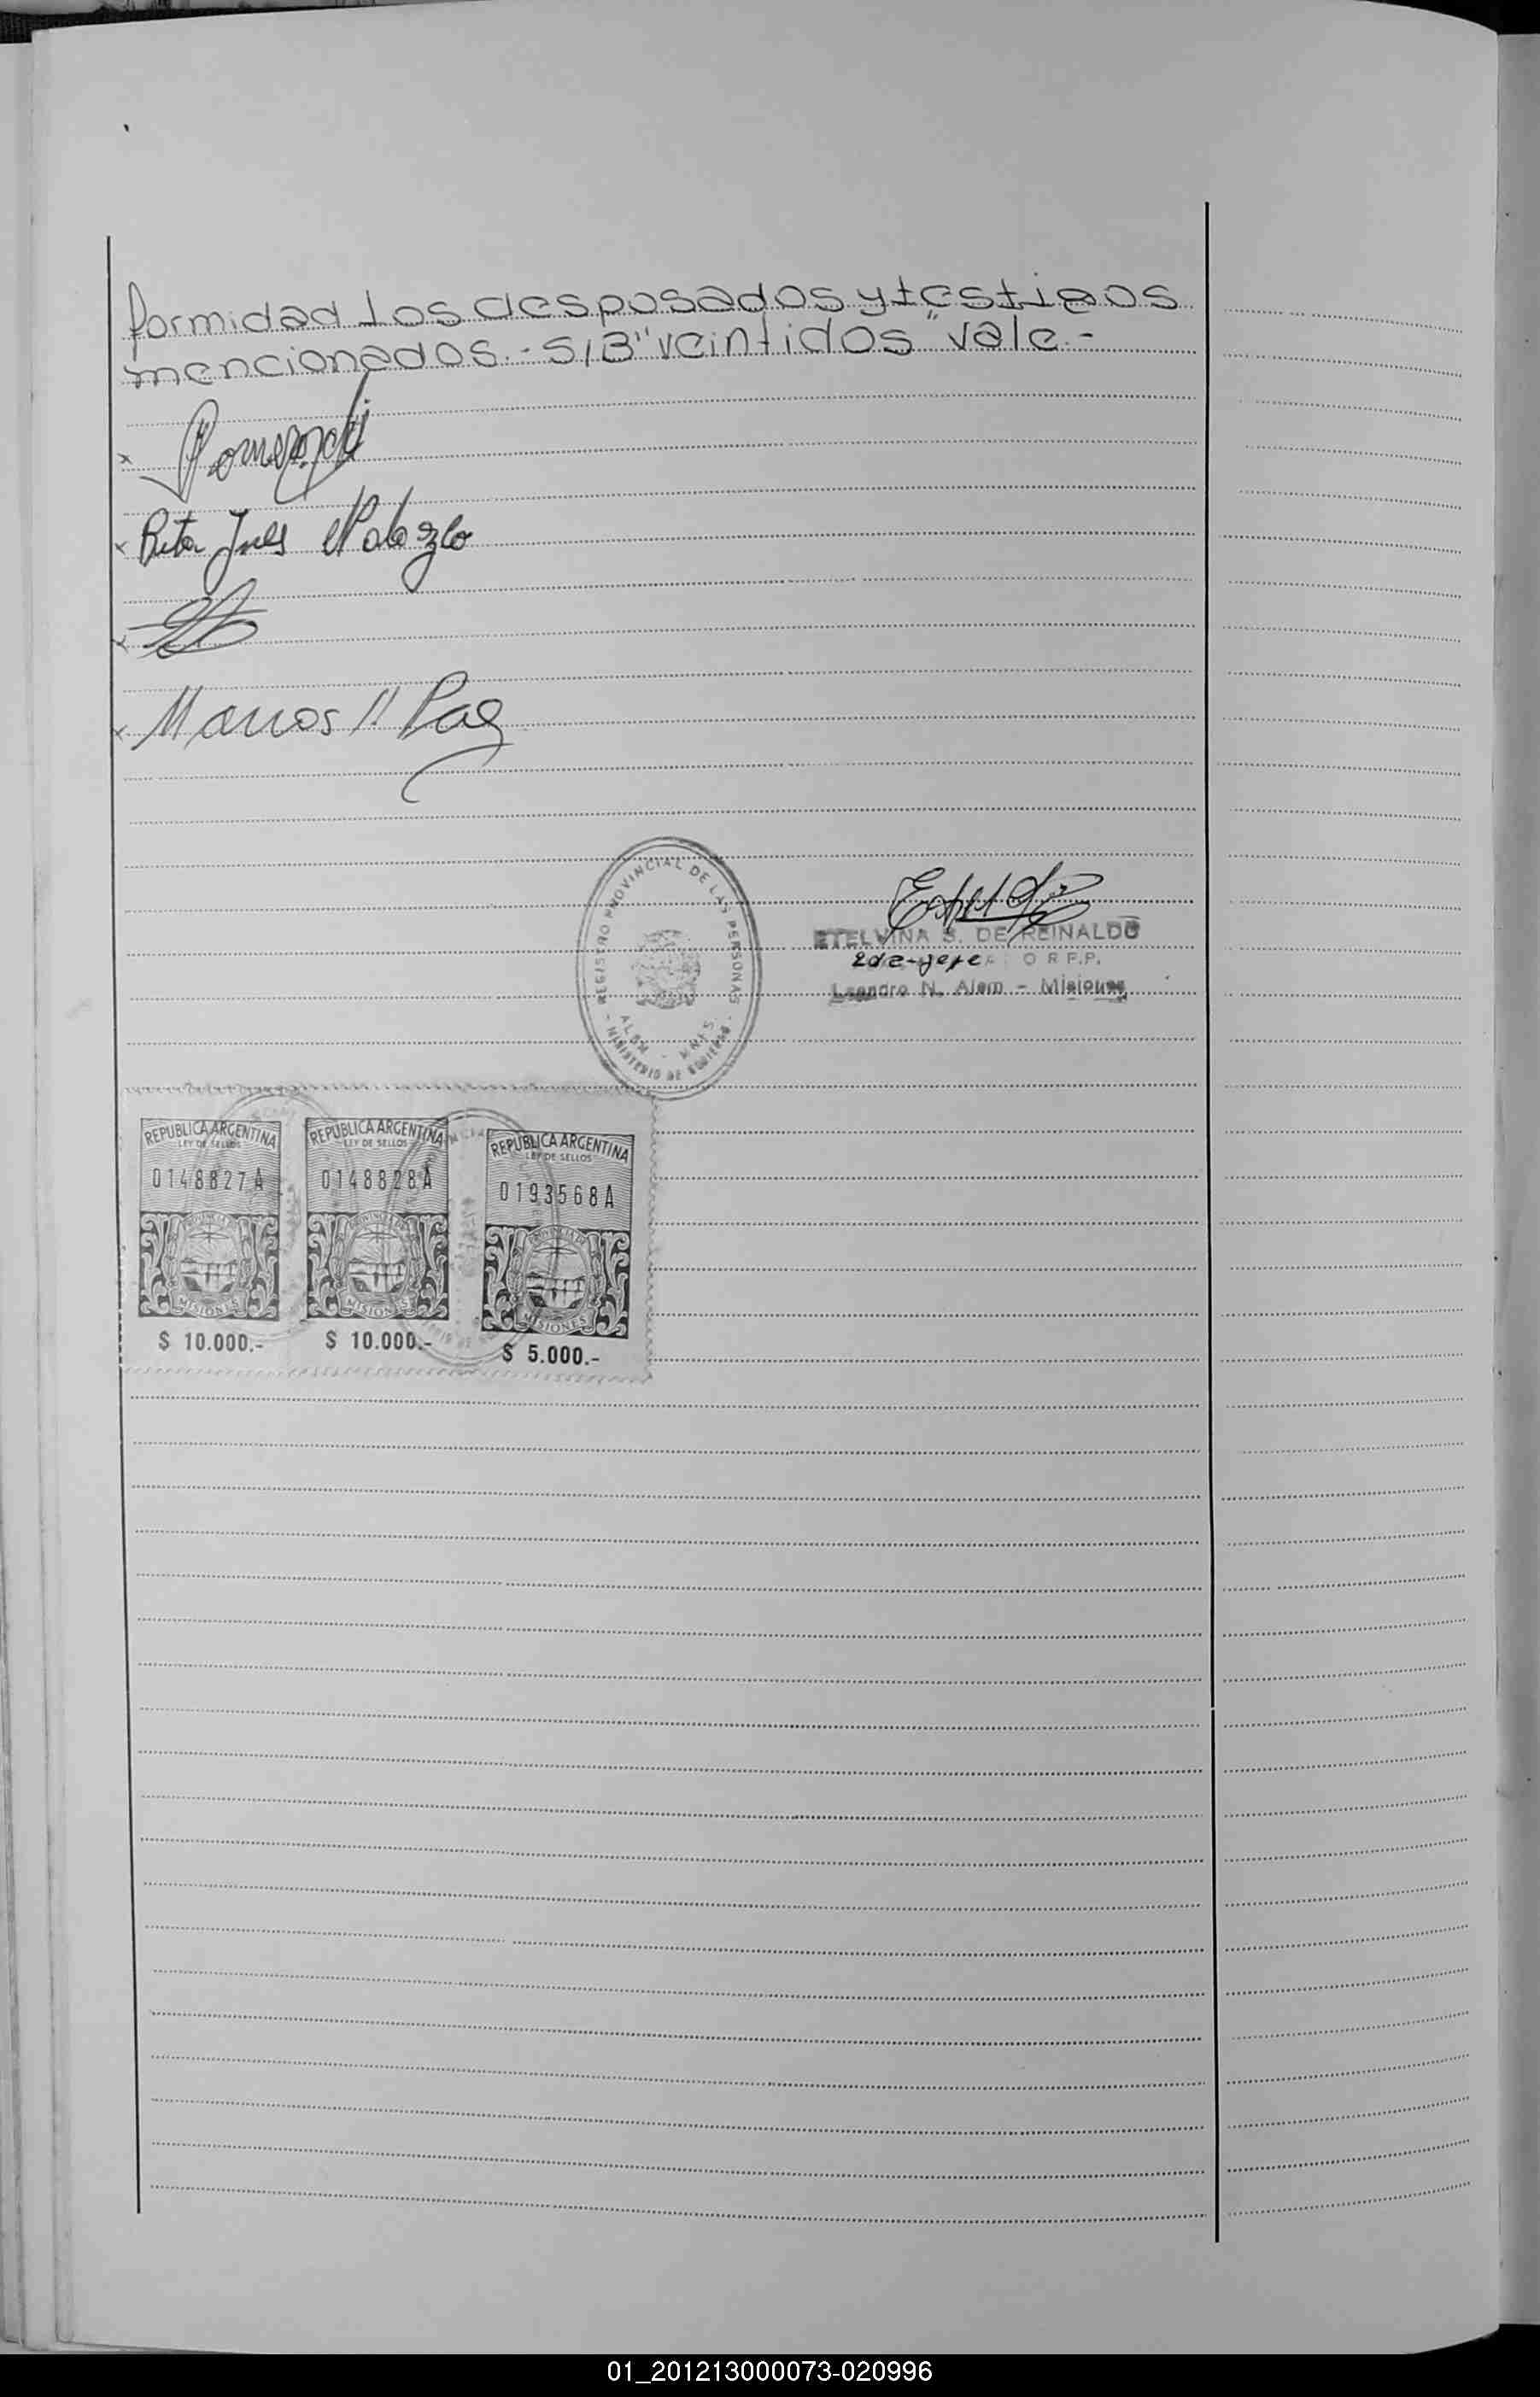 formidad los desposados y testigos
mencionados.- S/B "veintidos" vale.-
x
x Rita Ines
x
x Marcos A Paez
REGISTRO PROVINCIAL DE LAS PERSONAS
ALEM - MNES.
- MINISTERIO DE GOBIERNO -
ETELVINA S. DE REINALDO
2da-Jefe O R P.P.
Leandro N. Alem - Misiones
REPUBLICA ARGENTINA REPUBLICA ARGENTINA REPUBLICA ARGENTINA
LEY DE SELLOS LEY DE SELLOS LEY DE SELLOS
0148827A 0148828A 0193568A
PROVINCIA DE PROVINCIA DE PROVINCIA DE
MISIONES MISIONES MISIONES
$ 10.000.- $ 10.000.- $ 5.000.-
01_201213000073-020996